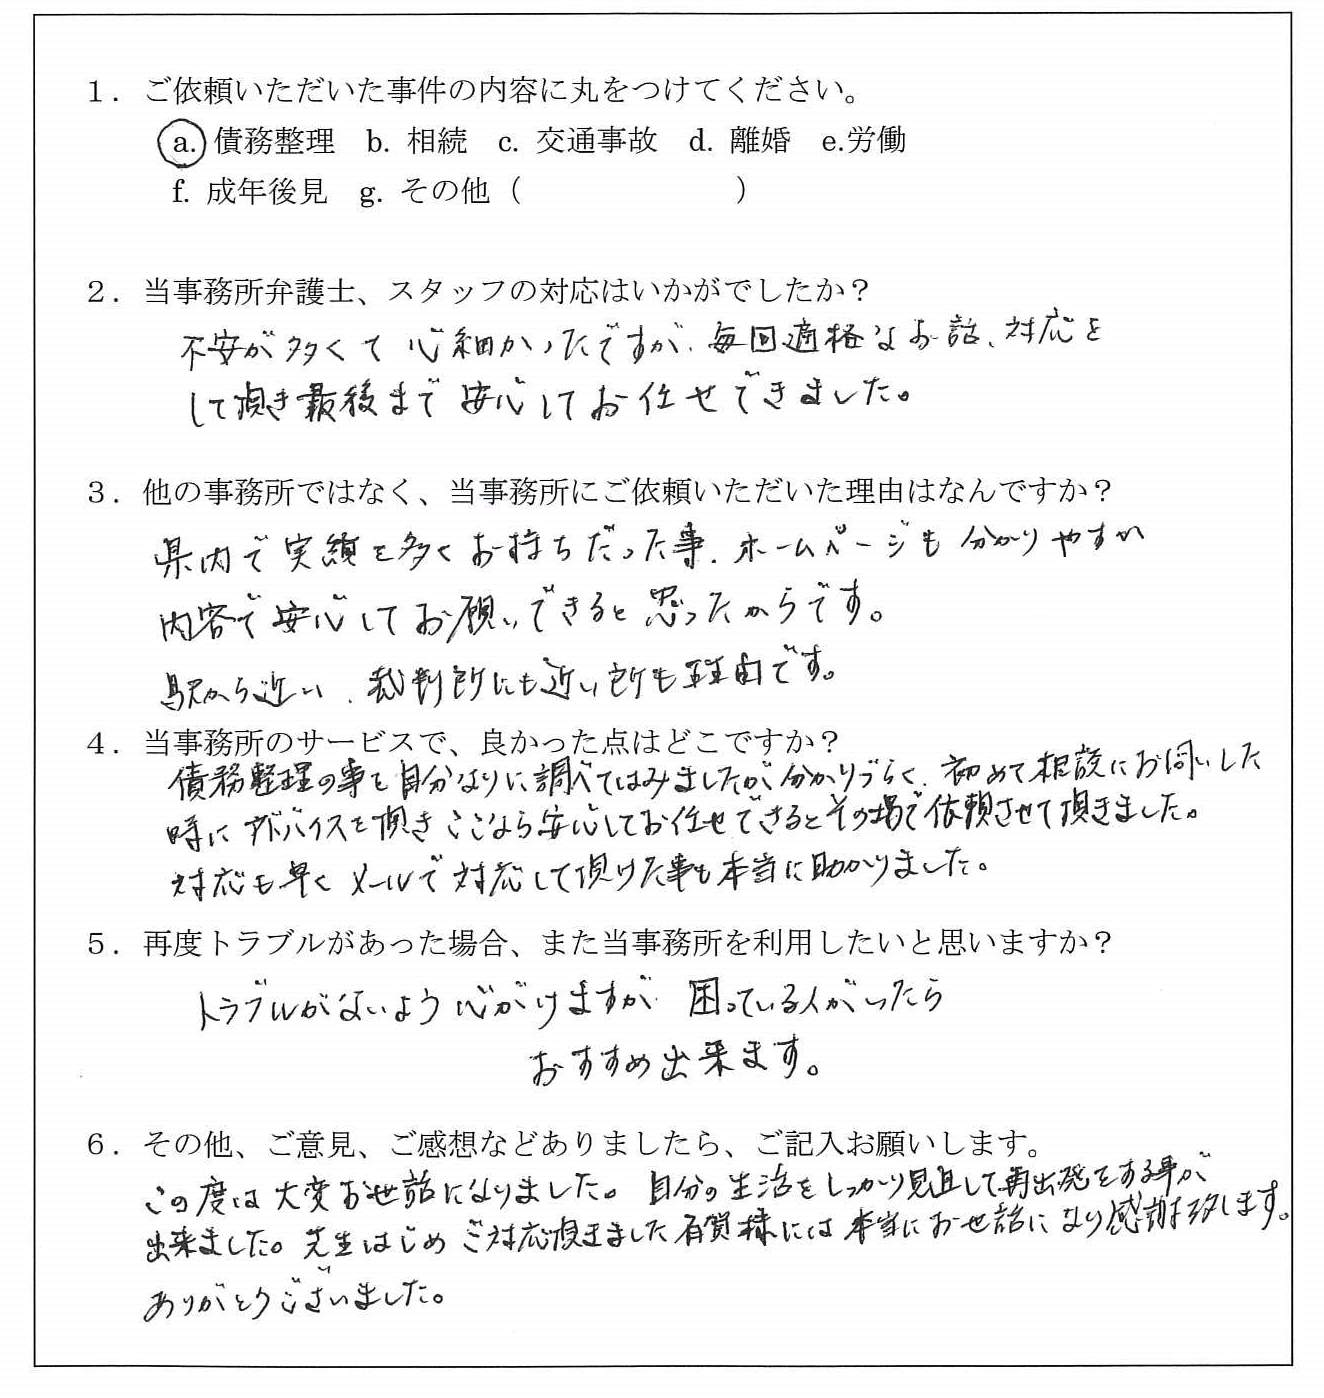 １．ご依頼いただいた事件の内容に丸をつけてください。
a. 債務整理　b. 相続　c. 交通事故　d. 離婚　e.労働
f. 成年後見　g. その他（　　　　　　　）
２．当事務所弁護士、スタッフの対応はいかがでしたか？
不安が多くて心細かったですが、毎回適格なお話、対応を
して頂き最後まで安心してお任せできました。
３．他の事務所ではなく、当事務所にご依頼いただいた理由はなんですか？
県内で実績を多くお持ちだった事、ホームページも分かりやすい
内容で安心してお願いできると思ったからです。
駅から近い、裁判所にも近い所も理由です。
４．当事務所のサービスで、良かった点はどこですか？
債務整理の事を自分なりに調べてはみましたが分かりづらく、初めて相談にお伺いした
時にアドバイスを頂きここなら安心してお任せできるとその場で依頼させて頂きました。
対応も早くメールで対応して頂けた事も本当に助かりました。
５．再度トラブルがあった場合、また当事務所を利用したいと思いますか？
トラブルがないよう心がけますが 困っている人がいたら
おすすめ出来ます。
６．その他、ご意見、ご感想などありましたら、ご記入お願いします。
この度は大変お世話になりました。自分の生活をしっかり見直して再出発をする事が
出来ました。先生はじめご対応頂きました有賀様には本当にお世話になり感謝致します。
ありがとうございました。